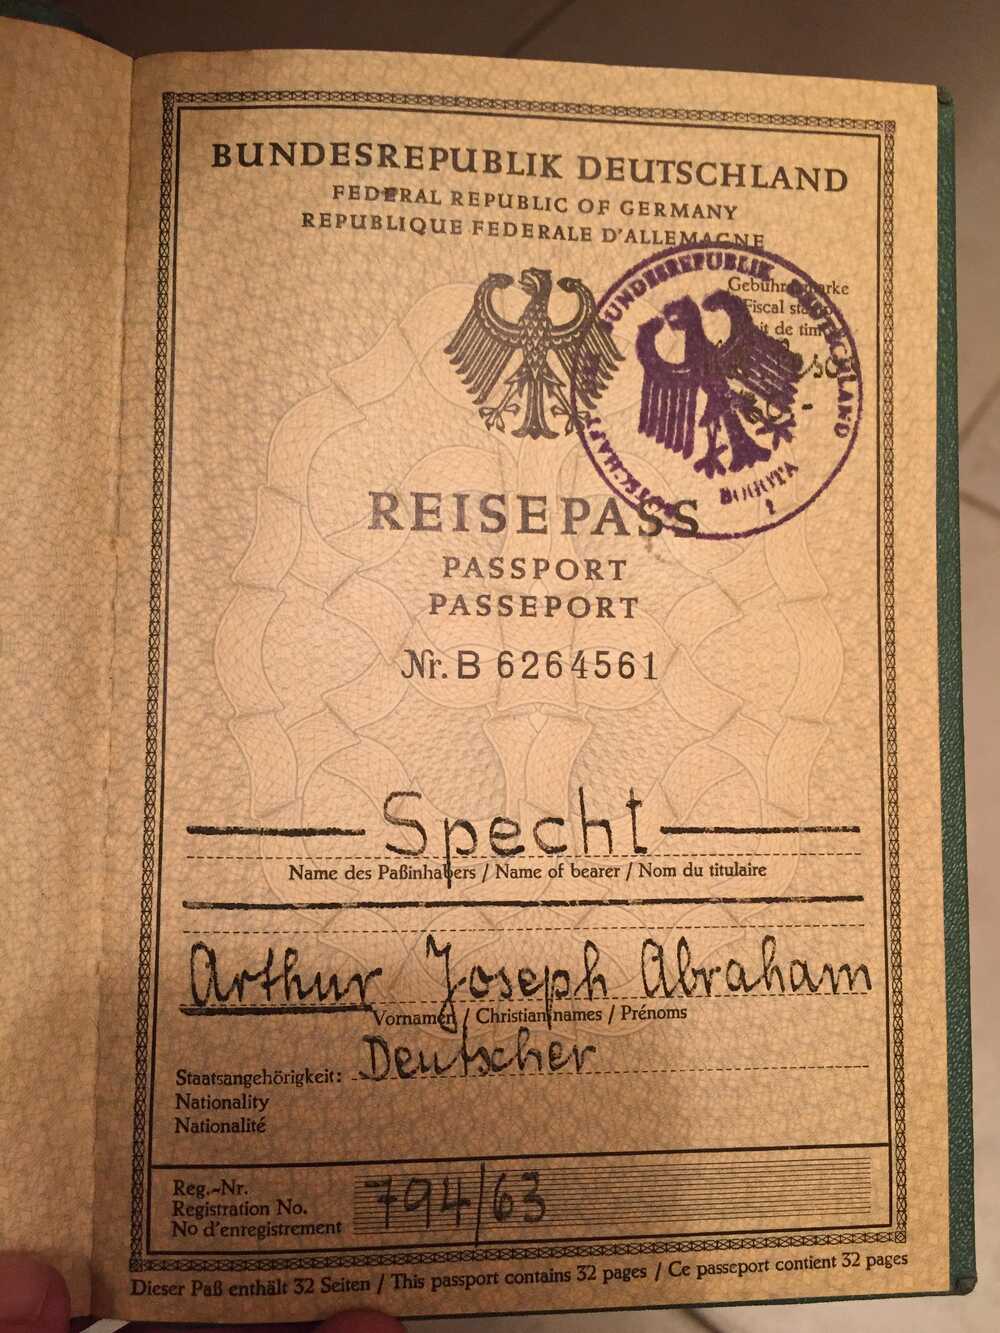 BUNDESREPUBLIK DEUTSCHLAND
FEDERAL REPUBLIC OF GERMANY
REPUBLIQUE FEDERALE D'ALLEMAGNE
Gebührenmarke
Fiscal
de
BUNDESREPUBLIK DEUTSCHLAND
BOGOTA
1
REISEPASS
PASSPORT
PASSEPORT
Nr. B 6264561
Specht
Name des Paßinhabers / Name of bearer / Nom du titulaire
Arthur Joseph Abraham
Vornamen / Christian names / Prénoms
Deutscher
Staatsangehörigkeit:
Nationality
Nationalité
Reg.-Nr.
Registration No.
No d'enregistrement
794/63
Dieser Paß enthält 32 Seiten / This passport contains 32 pages / Ce passeport contient 32 pages